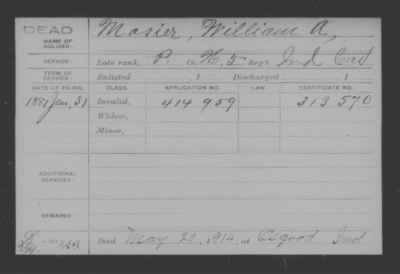 DEAD
NAME OF SOLDIER: Mosier, William A.
SERVICE: Late rank, P. Co. H, 5 Reg't Ind Cav
TERM OF SERVICE: Enlisted , 1 Discharged , 1
DATE OF FILING. CLASS. APPLICATION NO. LAW. CERTIFICATE NO.
1881 Jan, 31 Invalid, 414 959 313 570
Widow,
Minor,
ADDITIONAL SERVICES:
REMARKS:
Died May 20, 1914, at Osgood Ind